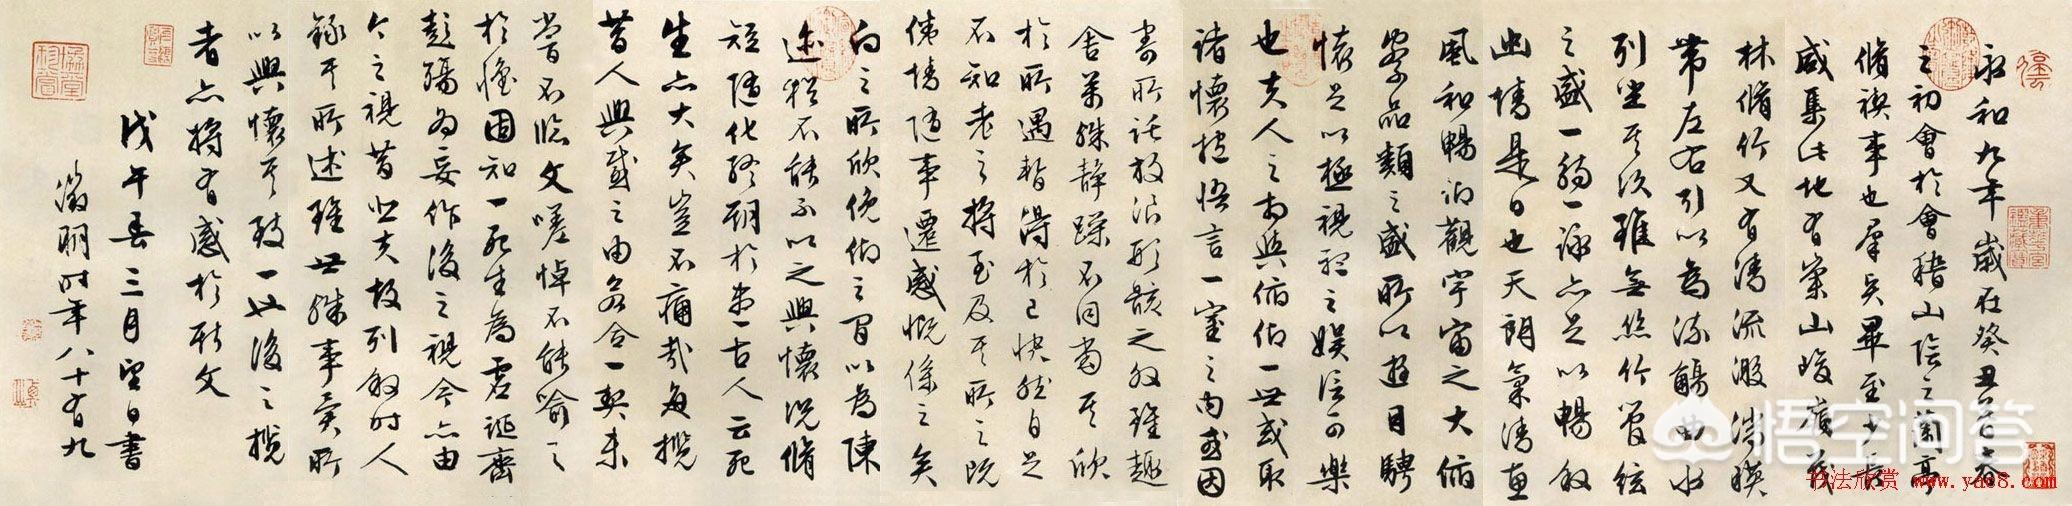 永和九年歲在癸丑暮春
之初會於會稽山陰之蘭亭
脩禊事也羣賢畢至少長
咸集此地有崇山峻嶺茂
林脩竹又有清流激湍暎
帶左右引以為流觴曲水
列坐其次雖無絲竹管絃
之盛一觴一詠亦足以暢敘
幽情是日也天朗氣清惠
風和暢仰觀宇宙之大俯
察品類之盛所以遊目騁
懷足以極視聽之娛信可樂
也夫人之相與俯仰一世或取
諸懷抱悟言一室之內或因
寄所託放浪形骸之外雖趣
舍萬殊靜躁不同當其欣
於所遇暫得於己快然自足
不知老之將至及其所之既
倦情隨事遷感慨係之矣
向之所欣俛仰之間以為陳
迹猶不能不以之興懷況脩
短隨化終期於盡古人云死
生亦大矣豈不痛哉每攬
昔人興感之由若合一契未
嘗不臨文嗟悼不能喻之
於懷固知一死生為虛誕齊
彭殤為妄作後之視今亦由
今之視昔悲夫故列敘時人
錄其所述雖世殊事異所
以興懷其致一也後之攬
者亦將有感於斯文
戊午春三月望日書
徵明時年八十有九
悟空问答
书法欣赏 www.yac8.com